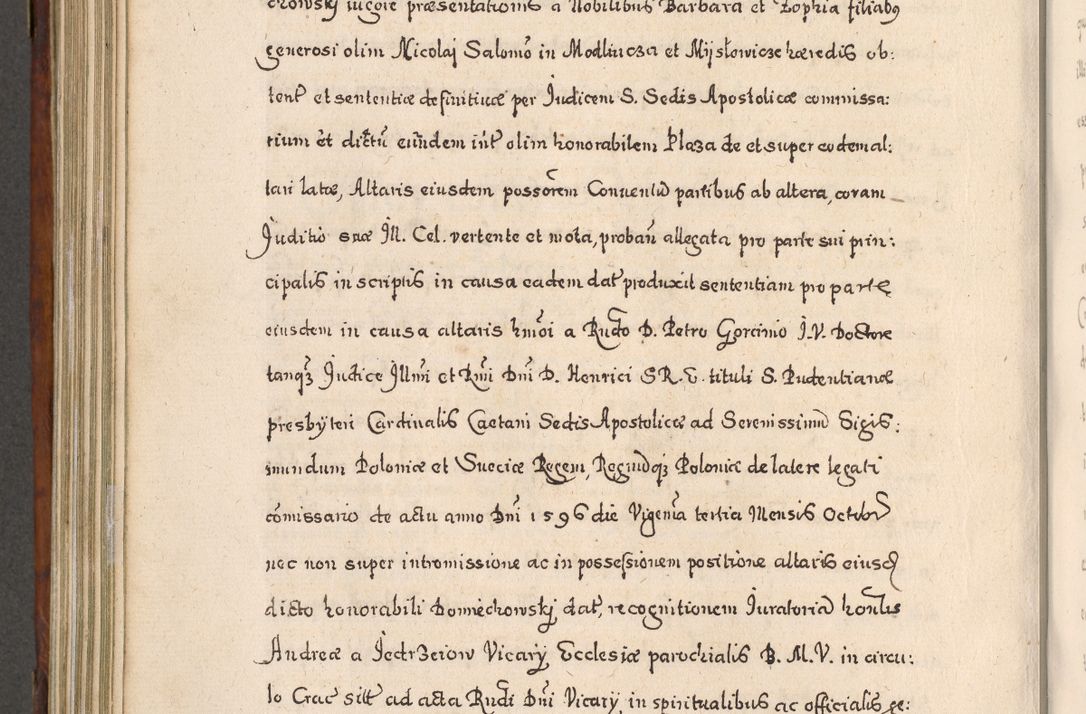 chowskj iurgie præsentationis a Nobilibus Barbara et Zophia filiabq
generosi olim Nicolaj Salomō in Modlincza et Mysłowicze hæredis ob:
tent et sententiæ definitiuæ per Judicem S. Sedis Apostolicæ commissa:
rium et dictū eundem int olim honorabilem Plaza de et super eodem al:
tari latæ, Altaris eiusdem possorem Conuentū partibus ab altera, coram
Juditio suæ Ill. Cel. vertente et mota, probaū allegata pro parte sui prin:
cipalis in scriptis in causa eadem dat produxit sententiam pro parte
eiusdem in causa altaris hmōi a Rndo D. Petro Gorcinio J.V. Doctore
tanq3 Judice Illmi et Rmi Dni D. Henrici S.R.E. tituli S. Pudentianæ
presbyteri Cardinalis Caetani Sedis Apostolicæ ad Serenissimū Sigis:
mundum Poloniæ et Sueciæ Regem, Regnūq3 Poloniæ de latere legati
cōmissario de actu anno Dni 1596 die Vigesima tertia Mensis Octobr
nec non super intromissione ac in possessionem positione altaris eiusd
dicto honorabili Domiechowskj dat, recognitionem Juratoriā honlis
Andreæ a Jedrzeiow Vicarÿ Ecclesiæ parochialis B. M. V. in circu:
lo Crac sitæ ad acta Rndi Dni Vicarÿ in spiritualibus ac officialis ge: